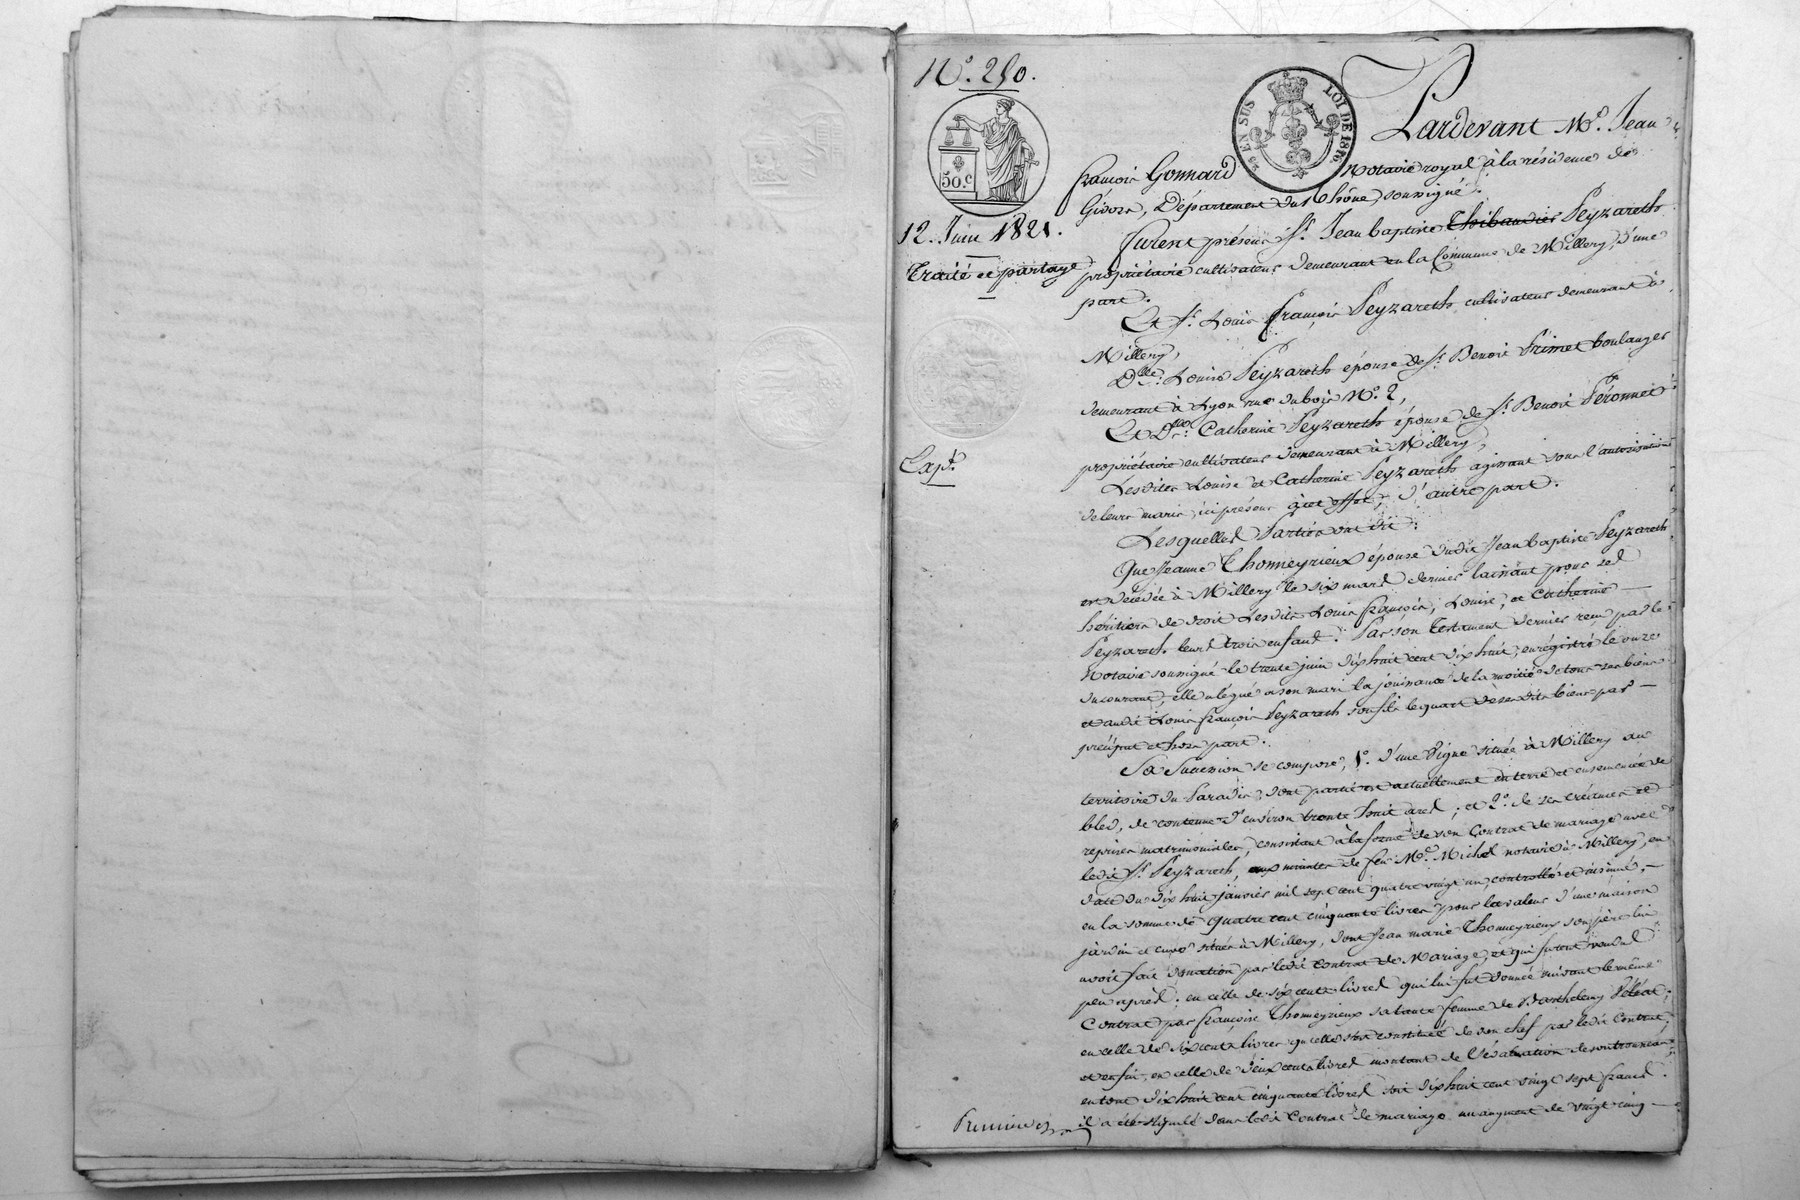 N.° 250.
50.c
25 EN SUS LOI DE 1816
12. Juin 1821.
Traité et partage
Exp.on
Pardevant M.e Jean
françois Gonnard notaire royal à la résidence de
Givors, Département du Rhône, soussigné.
furent présens S.r Jean baptiste Thibaudier Peyzareth
propriétaire cultivateur demeurant en la Commune de Millery, d'une
part.
Et S.r Louis françois Peyzareth cultivateur demeurant à
Millery,
D.lle Louise Peyzareth épouse de S.r Benoit Primet boulanger
demeurant à Lyon rue dubois N.° 2,
Et D.lle Catherine Peyzareth épouse de S.r Benoit Péronnet
propriétaire cultivateur demeurant à Millery,
Lesdites Louise et Catherine Peyzareth agissant sous l'autorisation
de leurs maris ici présens à cet effet, d'autre part.
Lesquelles Parties ont dit:
Que Jeanne Thonneyrieux épouse dudit Jean baptiste Peyzareth
est décédée à Millery le six mars dernier laissant pour ses
héritiers de droit Lesdits Louis françois, Louise, et Catherine
Peyzareth leurs trois enfans. Par son Testament dernier reçu par le
Notaire soussigné le trente juin dix huit cent dix huit, enrégistré le onze
du courant, elle a légué a son mari la jouissance de la moitié de tous ses biens
et audit Louis françois Peyzareth son fils le quart de ses dits biens par
préciput et hors part.
Sa Succession se compose, 1.° d'une Vigne située à Millery au
territoire du Paradis, dont partie est actuellement en terre et ensemencée de
bled, de contenue d'environ trente huit ares; et 2.° de ses créances et
reprises matrimoniales, consistant à la forme de son Contrat de mariage avec
ledit S.r Peyzareth, aux minutes de feu M.e Michel notaire à Millery, en
date du dix huit janvier mil sept cent quatre vingt un, controllé et insinué,
en la somme de quatre cent cinquante livres pour la valeur d'une maison
jardin et situés à Millery, dont Jean marie Thonneyrieux son père lui
avoit fait donation par ledit Contrat de Mariage, et qui furent vendus
peu après. en celle de six cents livres qui lui fut donnée suivant le même
Contrat par françoise Thonneyrieux sa tante femme de Barthelemy
en celle de six cents livres qu'elle s'est constituée de son chef par ledit Contrat;
et enfin, en celle de deux cents livres montant de l'évaluation de son trousseau
en tout dix huit cent cinquante livres soit dix huit cent vingt sept francs.
il a été stipulé dans ledit Contrat de mariage un augment de vingt cinq